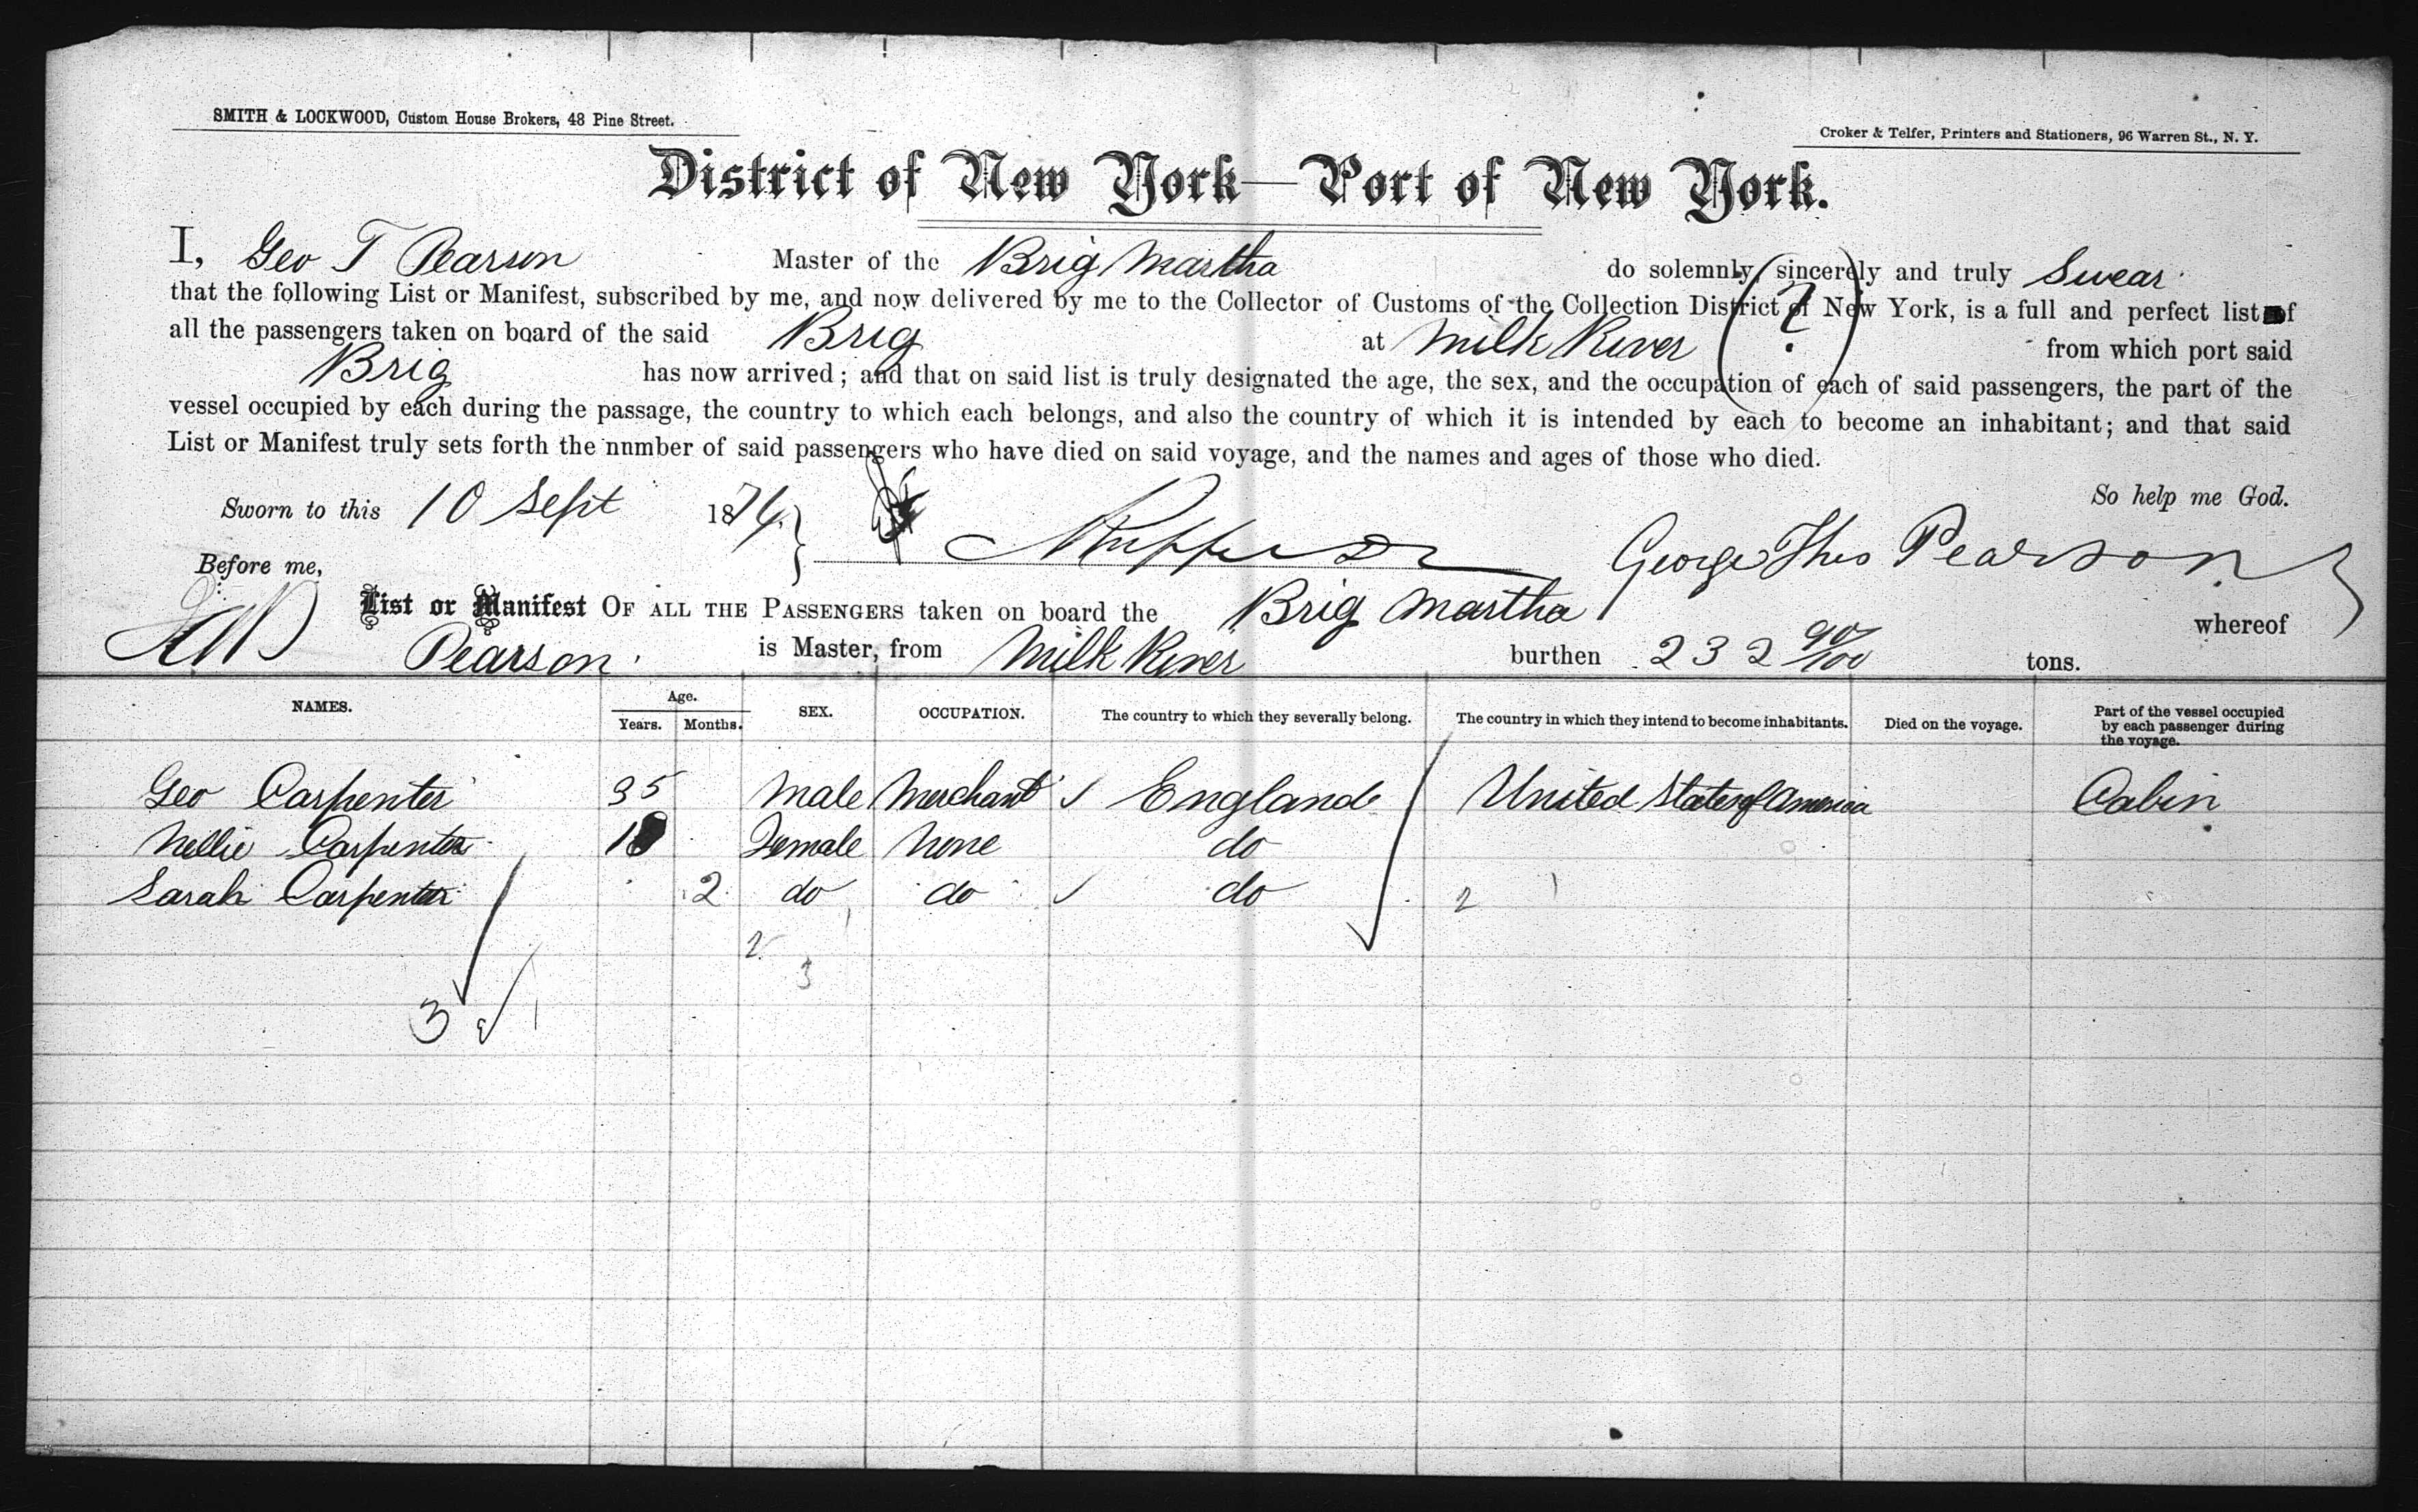 SMITH & LOCKWOOD, Custom House Brokers, 48 Pine Street.
Croker & Telfer, Printers and Stationers, 96 Warren St., N. Y.
District of New York—Port of New York.
I, Geo T Pearson Master of the Brig Martha do solemnly, sincerely and truly Swear
that the following List or Manifest, subscribed by me, and now delivered by me to the Collector of Customs of the Collection District of New York, is a full and perfect list of
all the passengers taken on board of the said Brig at Milk River (?) from which port said
Brig has now arrived; and that on said list is truly designated the age, the sex, and the occupation of each of said passengers, the part of the
vessel occupied by each during the passage, the country to which each belongs, and also the country of which it is intended by each to become an inhabitant; and that said
List or Manifest truly sets forth the nnmber of said passengers who have died on said voyage, and the names and ages of those who died.
So help me God.
Sworn to this 10 Sept 1874. George Thos Pearson
Before me,
List or Manifest OF ALL THE PASSENGERS taken on board the Brig Martha whereof
Pearson is Master, from Milk River burthen 232 90/100 tons.
NAMES. Age. Years. Months. SEX. OCCUPATION. The country to which they severally belong. The country in which they intend to become inhabitants. Died on the voyage. Part of the vessel occupied by each passenger during the voyage.
Geo Carpenter 35 Male Merchant England United States of America Cabin
Nellie Carpenter Female None do
Sarah Carpenter 2 do do do 2
2
3
3